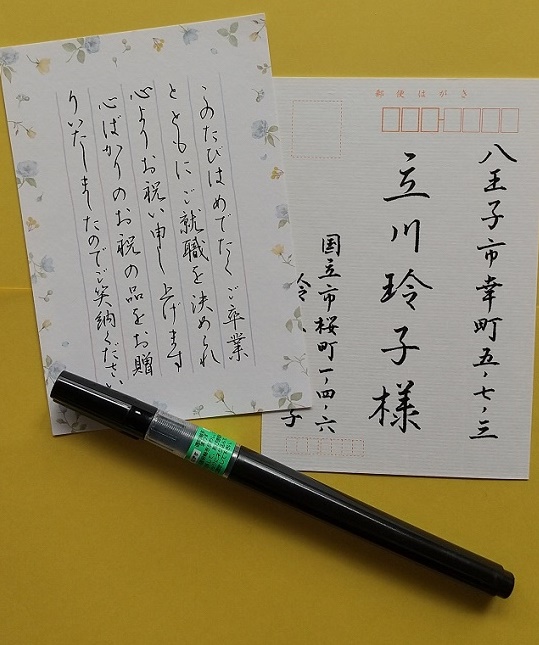 このたびはめでたくご卒業
とともにご就職を決められ
心よりお祝い申し上げます
心ばかりのお祝の品をお贈
りいたしましたのでご笑納ください
郵便はがき
八王子市幸町五・七・三
立川玲子様
国立市桜町一・四・六
子